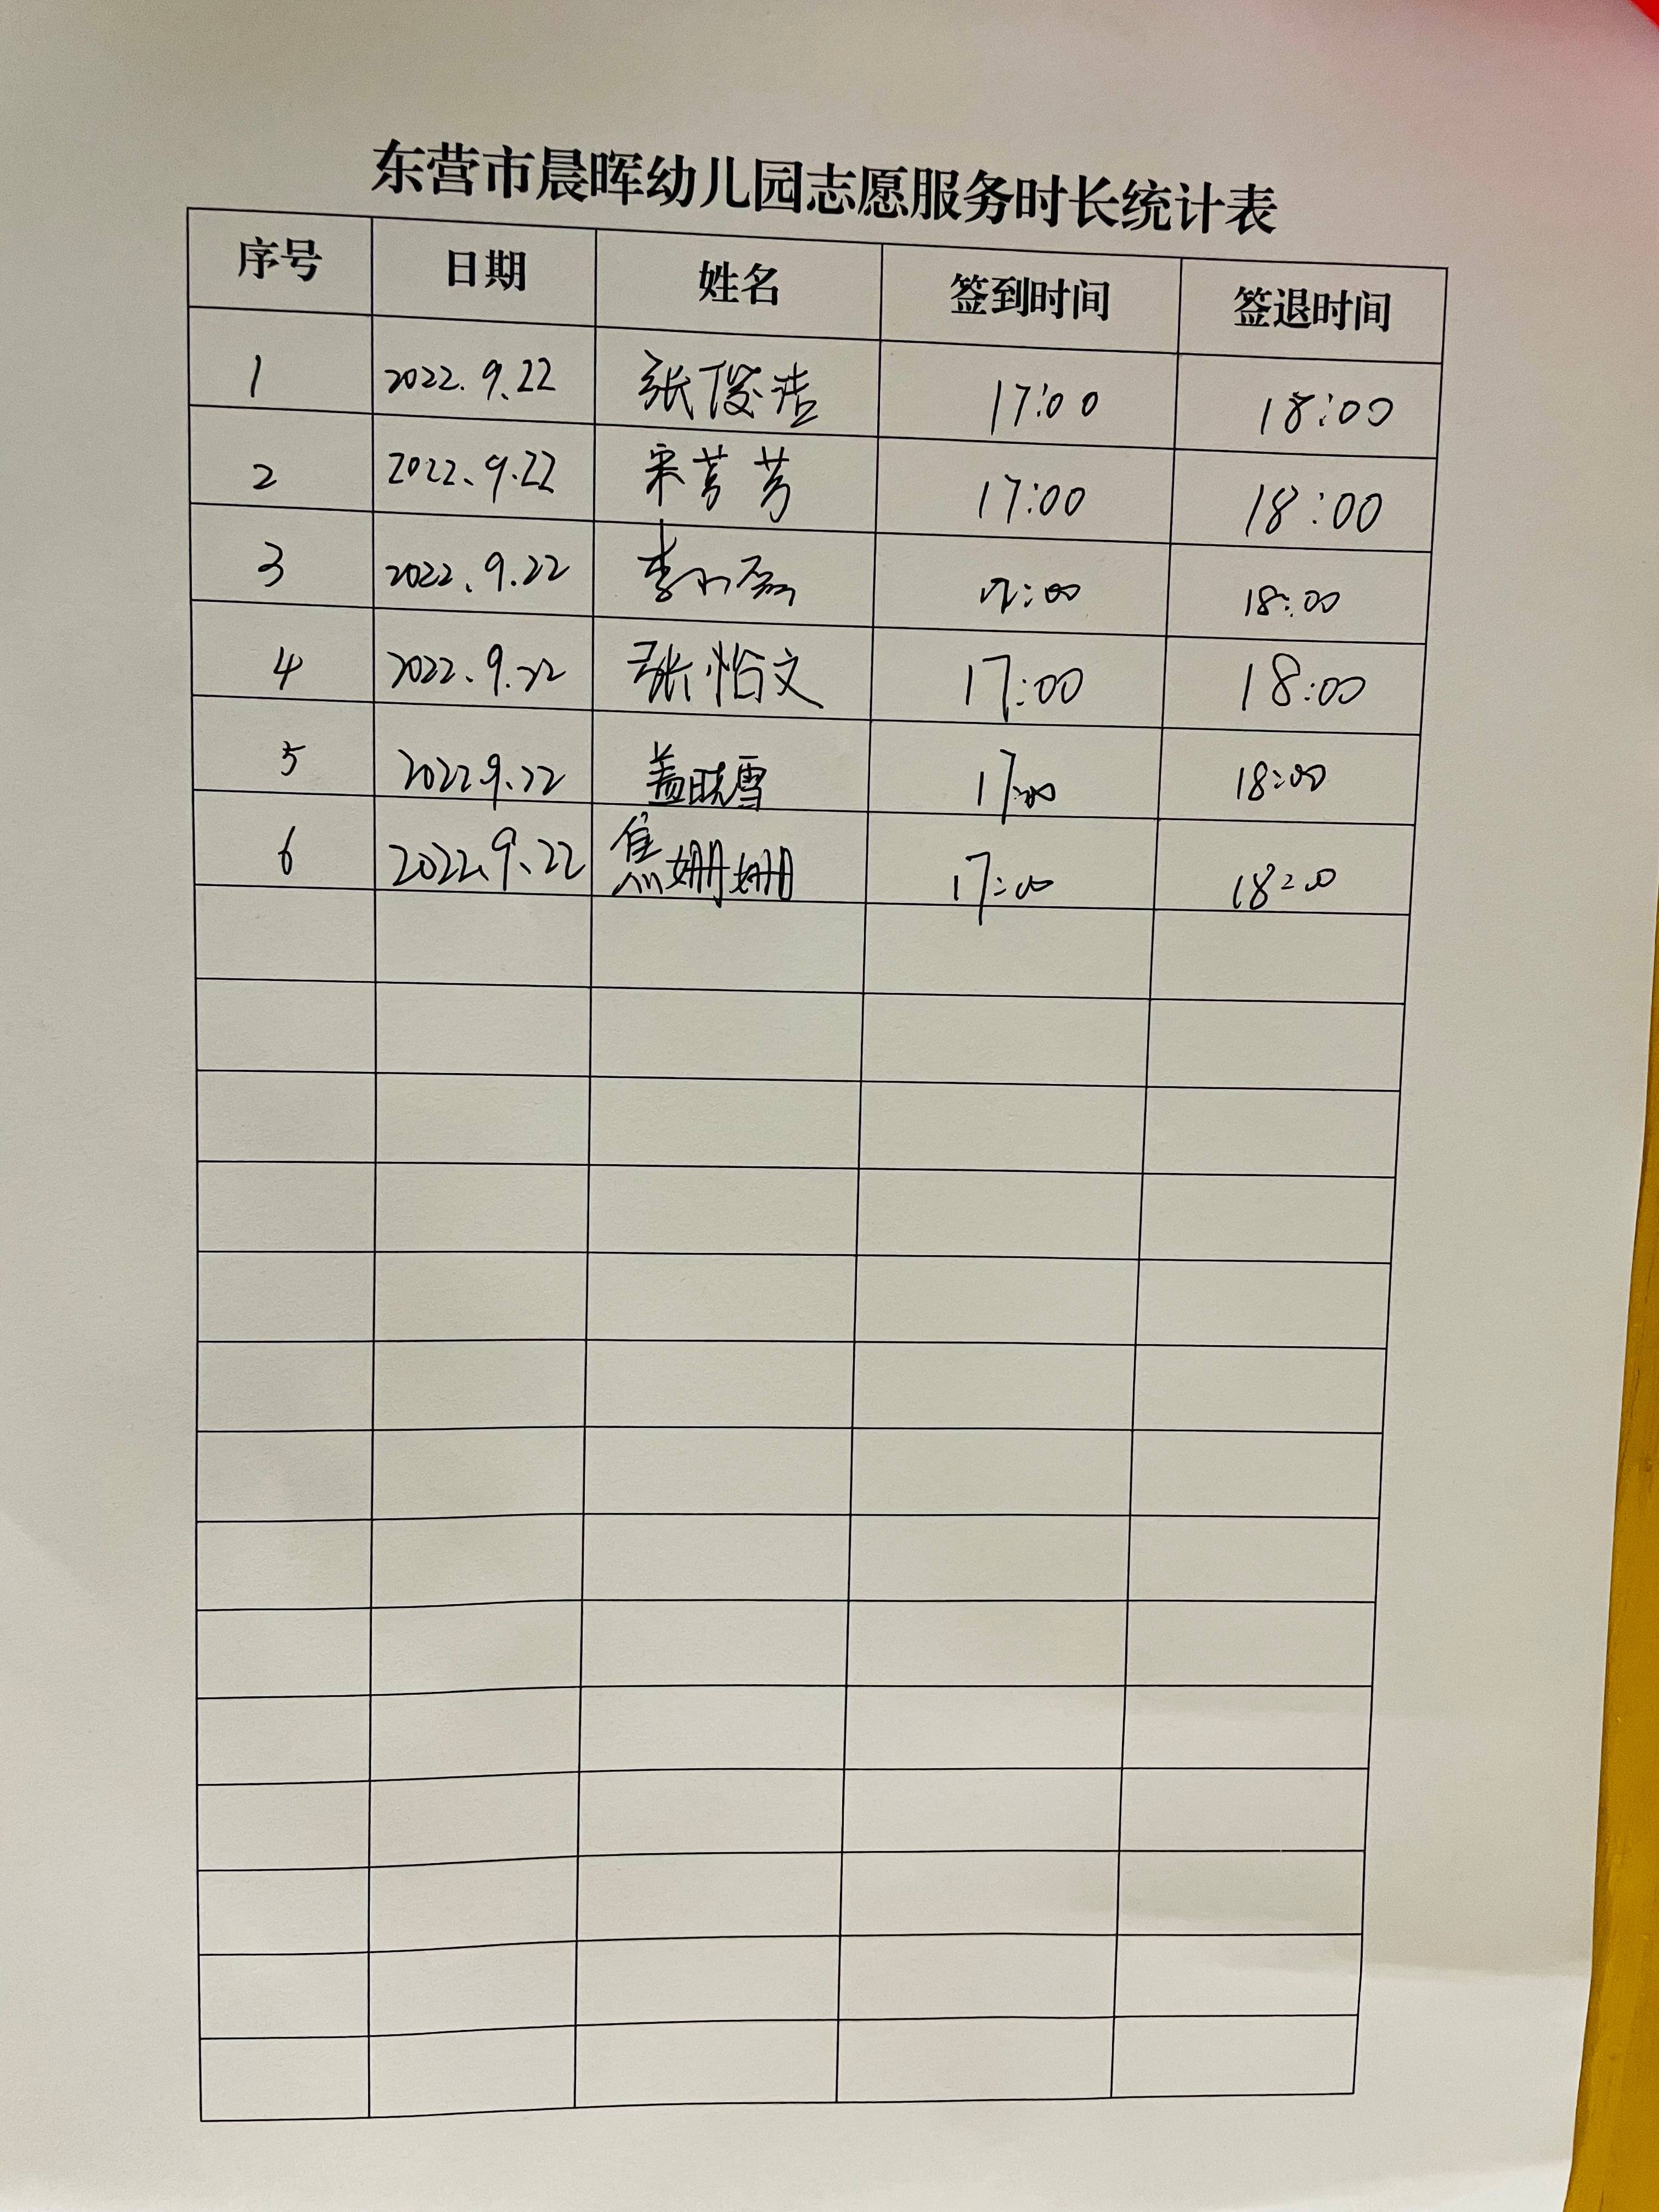 东营市晨晖幼儿园志愿服务时长统计表
序号 日期 姓名 签到时间 签退时间
1 2022.9.22 张俊洁 17:00 18:00
2 2022.9.22 宋芳芳 17:00 18:00
3 2022.9.22 李小磊 17:00 18:00
4 2022.9.22 张怡文 17:00 18:00
5 2022.9.22 盖晓雪 17:00 18:00
6 2022.9.22 焦姗姗 17:00 18:00